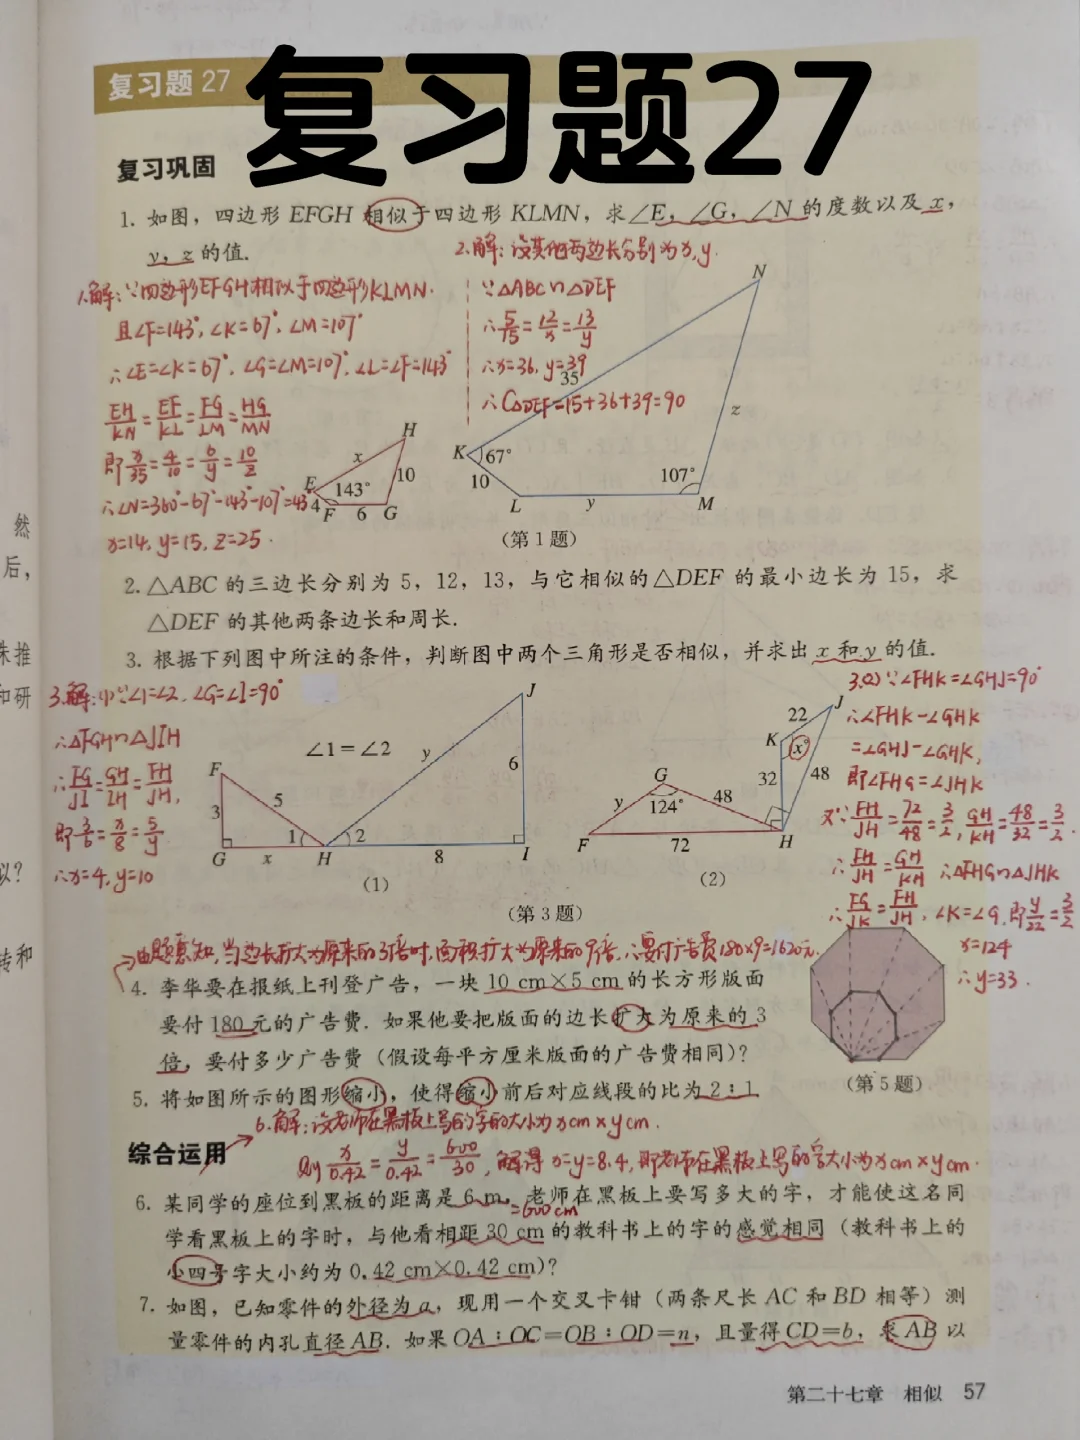 复习题 27
复习题27
复习巩固
1. 如图，四边形 EFGH 相似于四边形 KLMN，求∠E，∠G，∠N 的度数以及 x，
y，z 的值.
2.解：设其他两边长分别为x,y.
1.解：∵四边形EFGH相似于四边形KLMN.
且∠F=143°,∠K=67°,∠M=107°
∴∠E=∠K=67°,∠G=∠M=107°,∠L=∠F=143°
EH/KN=EF/KL=FG/LM=HG/MN
即x/35=4/10=6/y=10/z
∴∠N=360°-67°-143°-107°=43°
x=14, y=15, z=25.
∵△ABC∽△DEF
∴5/15=12/x=13/y
∴x=36, y=39
∴C△DEF=15+36+39=90
H
x
10
E
143°
4
F
6
G
N
35
z
K
67°
10
107°
L
y
M
（第 1 题）
2. △ABC 的三边长分别为 5，12，13，与它相似的△DEF 的最小边长为 15，求
△DEF 的其他两条边长和周长.
3. 根据下列图中所注的条件，判断图中两个三角形是否相似，并求出 x 和 y 的值.
3.解：(1)∵∠1=∠2,∠G=∠I=90°
∴△FGH∽△JIH
∴FG/JI=GH/IH=FH/JH,
即3/6=x/8=5/y
∴x=4, y=10
∠1=∠2
F
3
5
1
G
x
H
2
y
J
6
8
I
（1）
J
22
K
x°
32
48
G
y
124°
48
F
72
H
（2）
（第 3 题）
3.(2)∵∠FHK=∠GHJ=90°
∴∠FHK-∠GHK
=∠GHJ-∠GHK,
即∠FHG=∠JHK
又∵FH/JH=72/48=3/2, GH/KH=48/32=3/2
∴FH/JH=GH/KH ∴△FHG∽△JHK
∴FG/JK=FH/JH,∠K=∠G,即y/22=3/2
x=124
∴y=33.
由题意知,当边长扩大为原来的3倍时,面积扩大为原来的9倍,∴要付广告费180×9=1620元.
4. 李华要在报纸上刊登广告，一块 10 cm×5 cm 的长方形版面
要付 180 元的广告费. 如果他要把版面的边长扩大为原来的 3
倍，要付多少广告费（假设每平方厘米版面的广告费相同）？
（第 5 题）
5. 将如图所示的图形缩小，使得缩小前后对应线段的比为 2∶1.
6.解：设老师在黑板上写的字的大小为xcm×ycm.
综合运用
则x/0.42=y/0.42=600/30,解得x=y=8.4,即老师在黑板上写的字大小为xcm×ycm.
6. 某同学的座位到黑板的距离是 6 m，老师在黑板上要写多大的字，才能使这名同
=600cm
学看黑板上的字时，与他看相距 30 cm 的教科书上的字的感觉相同（教科书上的
小四号字大小约为 0.42 cm×0.42 cm）？
7. 如图，已知零件的外径为 a，现用一个交叉卡钳（两条尺长 AC 和 BD 相等）测
量零件的内孔直径 AB. 如果 OA∶OC=OB∶OD=n，且量得 CD=b，求 AB 以
第二十七章 相似 57
然
后，
推
和研
以？
转和